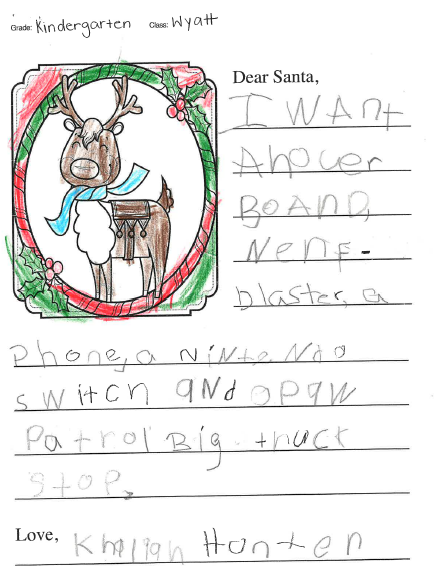 Grade: Kindergarten Class: Wyatt
Dear Santa,
I WANt
A hover
BOAND,
Nenf-
blaster, a
Phone, a NiNteNdo
switch aNd a paw
Patrol Big truck
stop.
Love, Hunten